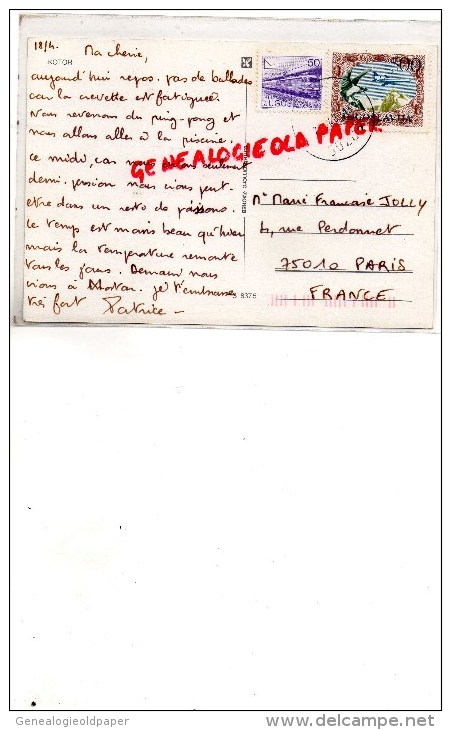 18/4. Ma chérie,
KOTOR
aujourd'hui repos. pas de ballades
car la crevette est fatiguée.
Nous revenons du ping-pong et
nous allons aller à la piscine
ce midi, car nous sommes seulement
demi-pension nous irons peut-
etre dans un resto de poissons.
Le temps est moins beau qu'hier
mais la température remonte
tous les jours. Demain nous
irons à Mostar. je t'embrasse
très fort Patrice -
50
JUGOSLAVIJA
JUGOSLAVIJA
GENEALOGIE OLD PAPER
Me Marie Françoise JOLLY
4, rue Perdonnet
75010 PARIS
FRANCE
8375
Genealogieoldpaper
www.delcampe.net